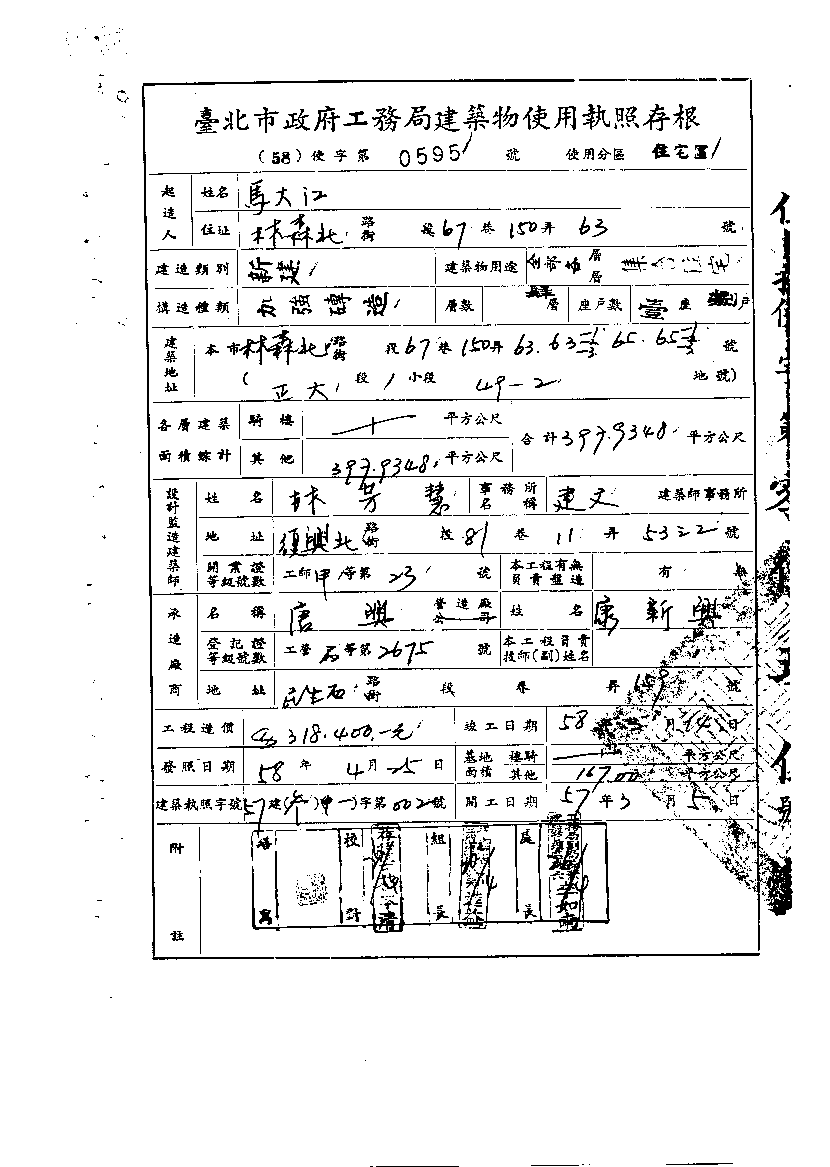 臺北市政府工務局建築物使用執照存根
(58)使字第 0595 號 使用分區 住宅區
起造人 姓名 馬大江
住址 林森北路街 段 67 巷 150 弄 63 號
建造類別 新建 建築物用途 全部各層層 集合住宅
構造種類 加強磚造 層數 層 座戶數 壹座 戶
建築地址 本市林森北路街 段 67 巷 150 弄 63. 65. 號
(正大 段 1 小段 49-2 地號)
各層建築面積總計 騎樓 平方公尺 合計 397.9348 平方公尺
其他 397.9348 平方公尺
設計監造建築師 姓名 林芳慧 事務所名稱 建文 建築師事務所
地址 復興北路街 段 81 巷 11 弄 號
開業證等級號數 工師甲等第 23 號 本工程有無負責監造 有 無
承造廠商 名稱 唐興 營造廠公司 姓名 康新興
登記證等級號數 工營 等第 2675 號 本工程負責技師(副)姓名
地址 路街 段 巷 弄 159 號
工程造價 318.400.-元 竣工日期 58 年 月 14 日
發照日期 58 年 4 月 25 日 基地面積 樓騎 平方公尺
其他 167.00 平方公尺
建築執照字號 57 建( )( )字第 002 號 開工日期 57 年 3 月 5 日
附註
繕寫 校對 組長 局長